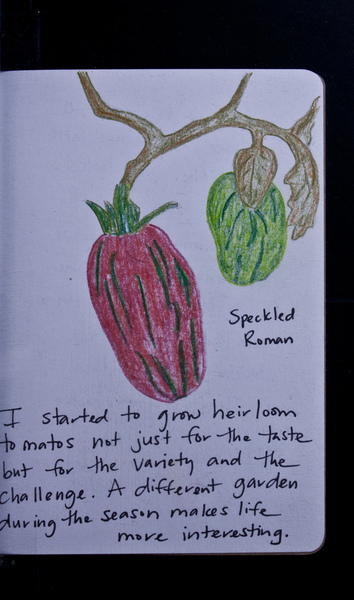 Speckled
Roman
I started to grow heirloom
tomatos not just for the taste
but for the variety and the
challenge. A different garden
during the season makes life
more interesting.